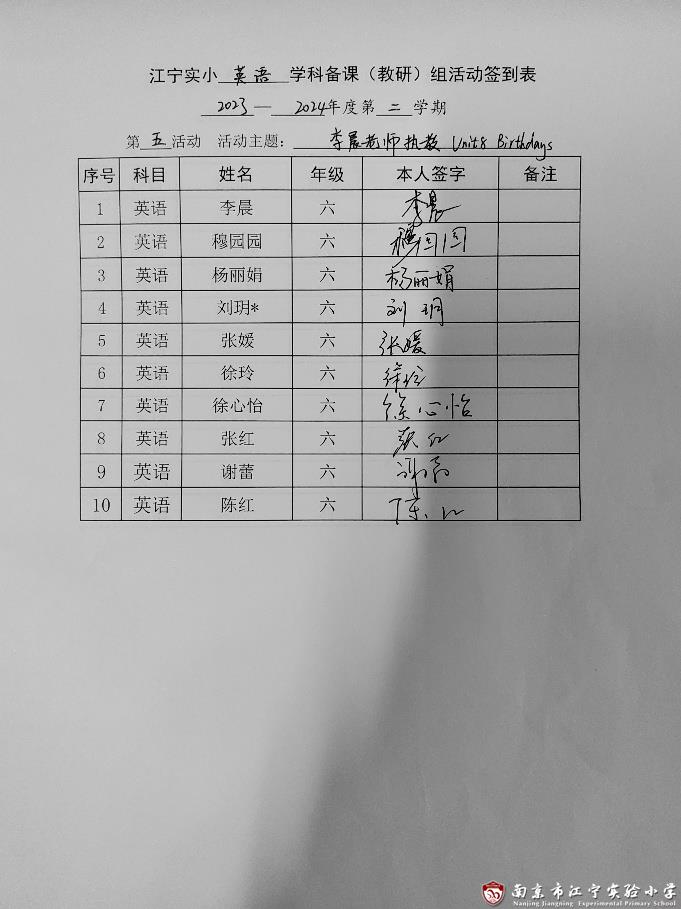 江宁实小 英语 学科备课（教研）组活动签到表
2023— 2024年度第 二 学期
第 五 活动 活动主题： 李晨老师执教 Unit8 Birthdays
序号 科目 姓名 年级 本人签字 备注
1 英语 李晨 六 李晨
2 英语 穆园园 六 穆园园
3 英语 杨丽娟 六 杨丽娟
4 英语 刘玥* 六 刘玥
5 英语 张媛 六 张媛
6 英语 徐玲 六 徐玲
7 英语 徐心怡 六 徐心怡
8 英语 张红 六 张红
9 英语 谢蕾 六 谢蕾
10 英语 陈红 六 陈红
南京市江宁实验小学
Nanjing Jiangning Experimental Primary School